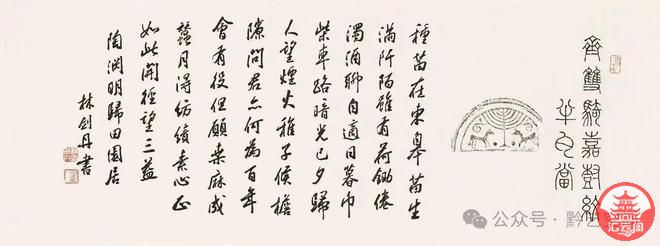 齊雙騎嘉樹紋
半瓦當
種苗在東皋苗生
滿阡陌雖有荷鋤倦
濁酒聊自適日暮巾
柴車路暗光已夕歸
人望煙火稚子候檐
隙問君亦何為百年
會有役但願桑麻成
蠶月得紡績素心正
如此開徑望三益
陶淵明歸田園居
林劍丹書
公众号·黔艺
汇云阁